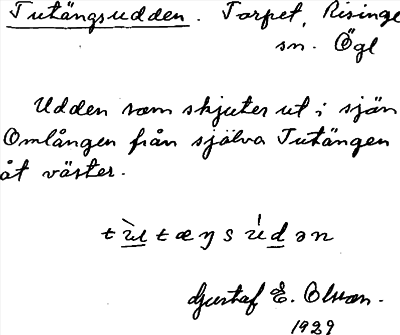 Tutängsudden. Torpet, Risinge
sn. Ögl
Udden som skjuter ut i sjön
Omlången från själva Tutängen
åt väster.
t ù̲t̲ æŋ s ú d̲ ə n
Gustaf E. Olsson.
1929